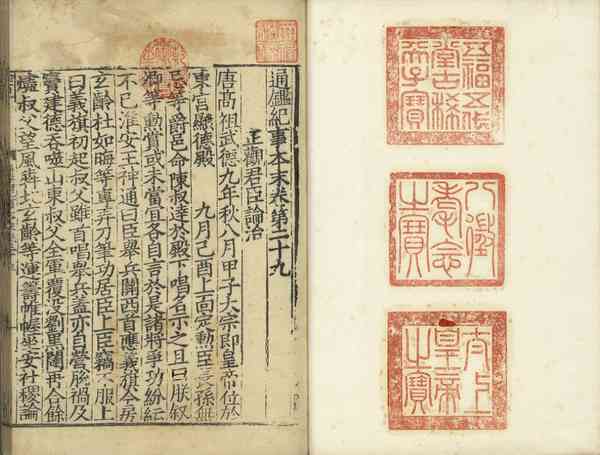 五福五代
堂古稀
天子寶
八徵
耄念
之寶
太上
皇帝
之寶
通鑑紀事本末卷第二十九
正觀君臣論治
唐髙祖武德九年秋八月甲子太宗即皇帝位於
東宮顯德殿　九月己酉上面定勳臣長孫無
忌等爵邑命陳叔達於殿下唱名示之且曰朕叙
卿等勳賞或未當宜各自言於是諸將爭功紛紜
不已淮安王神通曰臣舉兵關西首應義旗今房
玄齡杜如晦等專弄刀筆功居臣上臣竊不服上
曰義旗初起叔父雖首唱舉兵蓋亦自營脫禍及
竇建德吞噬山東叔父全軍覆没劉黑闥再合餘
燼叔父望風奔北玄齡等運籌帷幄坐安社稷論